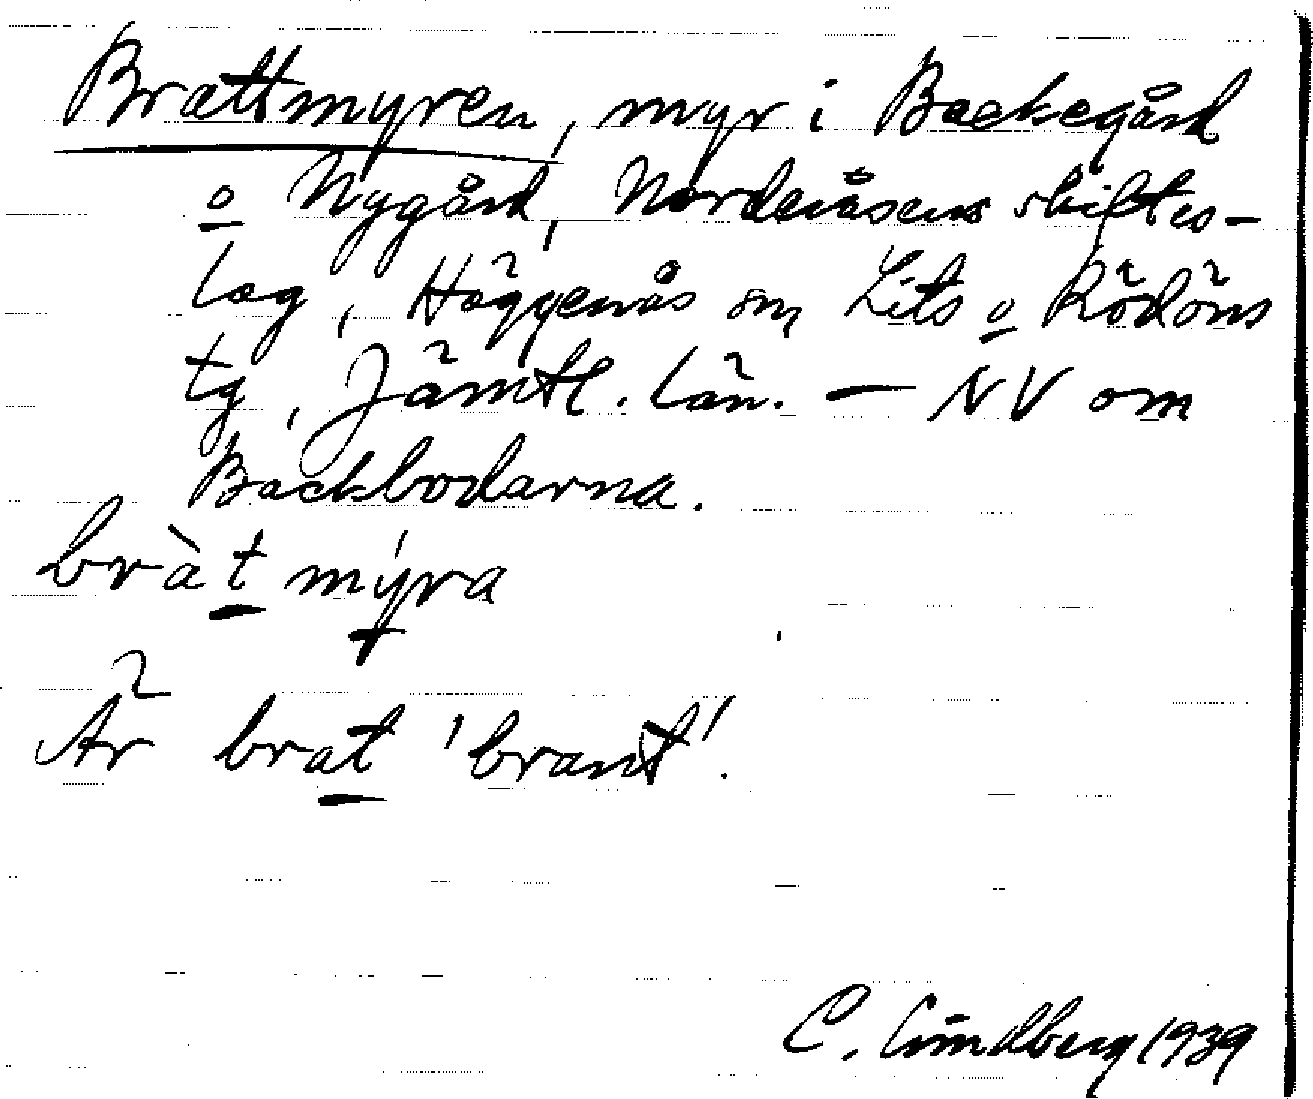 Brattmyren, myr i Backegård
o Nygård, Nordenåsens skiftes-
lag, Häggenås sn, Lits o Rödöns
tg, Jämtl. län. — NV om
Backbodarna.
bràt mýra
Är brat 'brant'.
C. Lundberg 1939